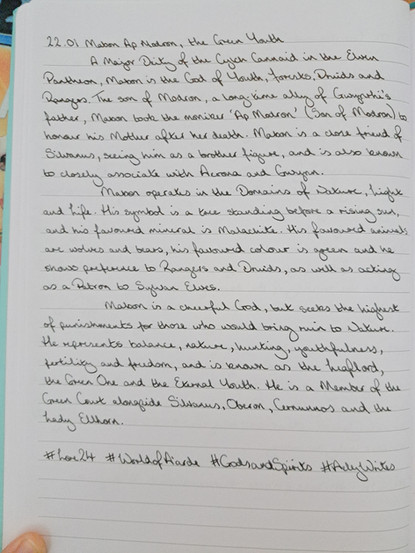 22.01 Mabon Ap Modron, the Green Youth
A Major Deity of the Cylch Cannaid in the Elven
Pantheon, Mabon is the God of Youth, Forests, Druids and
Rangers. The son of Modron, a long-time ally of Gwynthi's
father, Mabon took the moniker 'Ap Modron' (Son of Modron) to
honour his Mother after her death. Mabon is a close friend of
Silvanus, seeing him as a brother figure, and is also known
to closely associate with Aerona and Gwynn.
Mabon operates in the Domains of Nature, Light
and Life. His symbol is a tree standing before a rising sun,
and his favoured mineral is Malachite. His favoured animals
are wolves and bears, his favoured colour is green and he
shows preference to Rangers and Druids, as well as acting
as a Patron to Sylvan Elves.
Mabon is a cheerful God, but seeks the highest
of punishments for those who would bring ruin to Nature.
He represents balance, nature, hunting, youthfulness,
fertility and freedom, and is known as the Leaflord,
the Green One and the Eternal Youth. He is a Member of the
Green Court alongside Silvanus, Oberon, Cernunnos and the
Lady Ellhorn.
#Lore24 #WorldofAiarde #GodsandSpirits #ArlyWrites